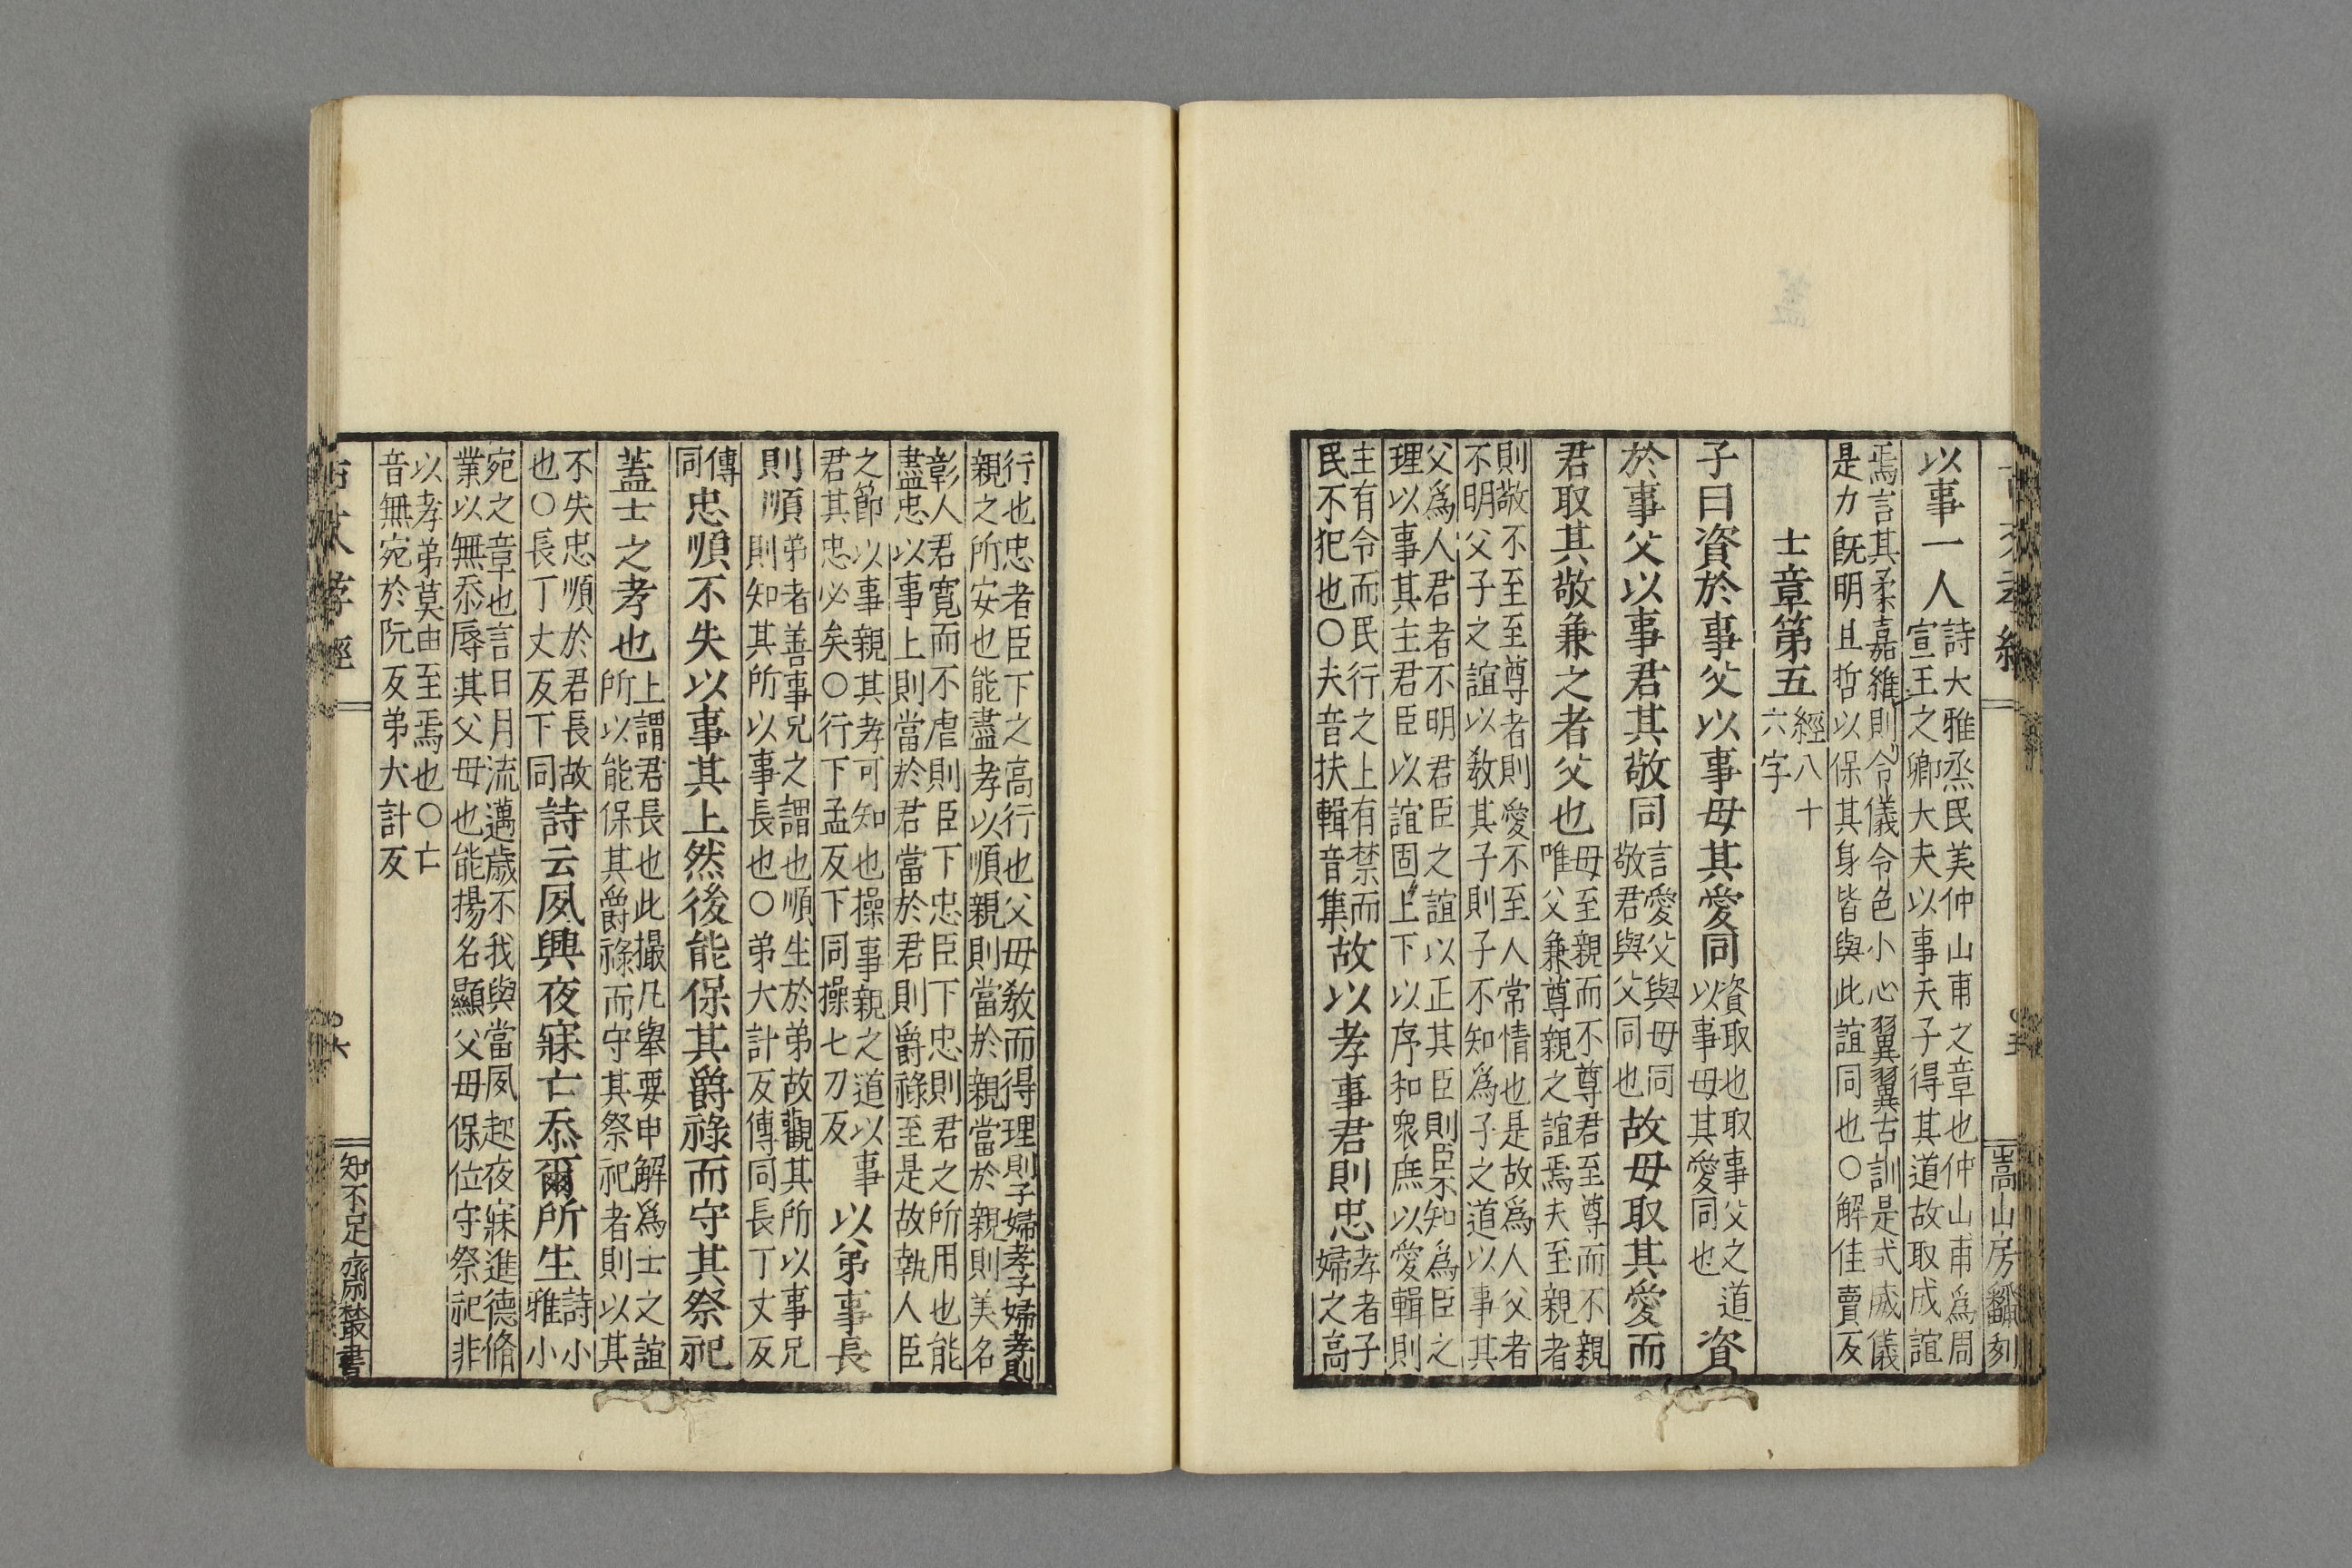 古文孝經
嵩山房翻刻
以事一人詩大雅烝民美仲山甫之章也仲山甫爲周
宣王之卿大夫以事天子得其道故取成誼
焉言其柔嘉維則令儀令色小心翼翼古訓是式威儀
是力旣明且哲以保其身皆與此誼同也○解佳賣反
士章第五經八十
六字
子曰資於事父以事母其愛同資取也取事父之道
以事母其愛同也資
於事父以事君其敬同言愛父與母同
敬君與父同也故母取其愛而
君取其敬兼之者父也母至親而不尊君至尊而不親
唯父兼尊親之誼焉夫至親者
則敬不至至尊者則愛不至人常情也是故爲人父者
不明父子之誼以敎其子則子不知爲子之道以事其
父爲人君者不明君臣之誼以正其臣則臣不知爲臣之
理以事其主君臣以誼固上下以序和衆庶以愛輯則
主有令而民行之上有禁而
民不犯也○夫音扶輯音集故以孝事君則忠孝者子
婦之高
行也忠者臣下之高行也父母敎而得理則子婦孝子婦孝則
親之所安也能盡孝以順親則當於親當於親則美名
彰人君寬而不虐則臣下忠臣下忠則君之所用也能
盡忠以事上則當於君當於君則爵祿至是故執人臣
之節以事親其孝可知也操事親之道以事
君其忠必矣○行下孟反下同操七刀反以弟事長
則順弟者善事兄之謂也順生於弟故觀其所以事兄
則知其所以事長也○弟大計反傳同長丁丈反
傳
同忠順不失以事其上然後能保其爵祿而守其祭祀
蓋士之孝也上謂君長也此撮凡舉要申解爲士之誼
所以能保其爵祿而守其祭祀者則以其
不失忠順於君長故
也○長丁丈反下同詩云夙興夜寐亡忝爾所生詩小
雅小
宛之章也言日月流邁歲不我與當夙起夜寐進德脩
業以無忝辱其父母也能揚名顯父母保位守祭祀非
以孝弟莫由至焉也○亡
音無宛於阮反弟大計反
古文孝經
六
知不足齋叢書